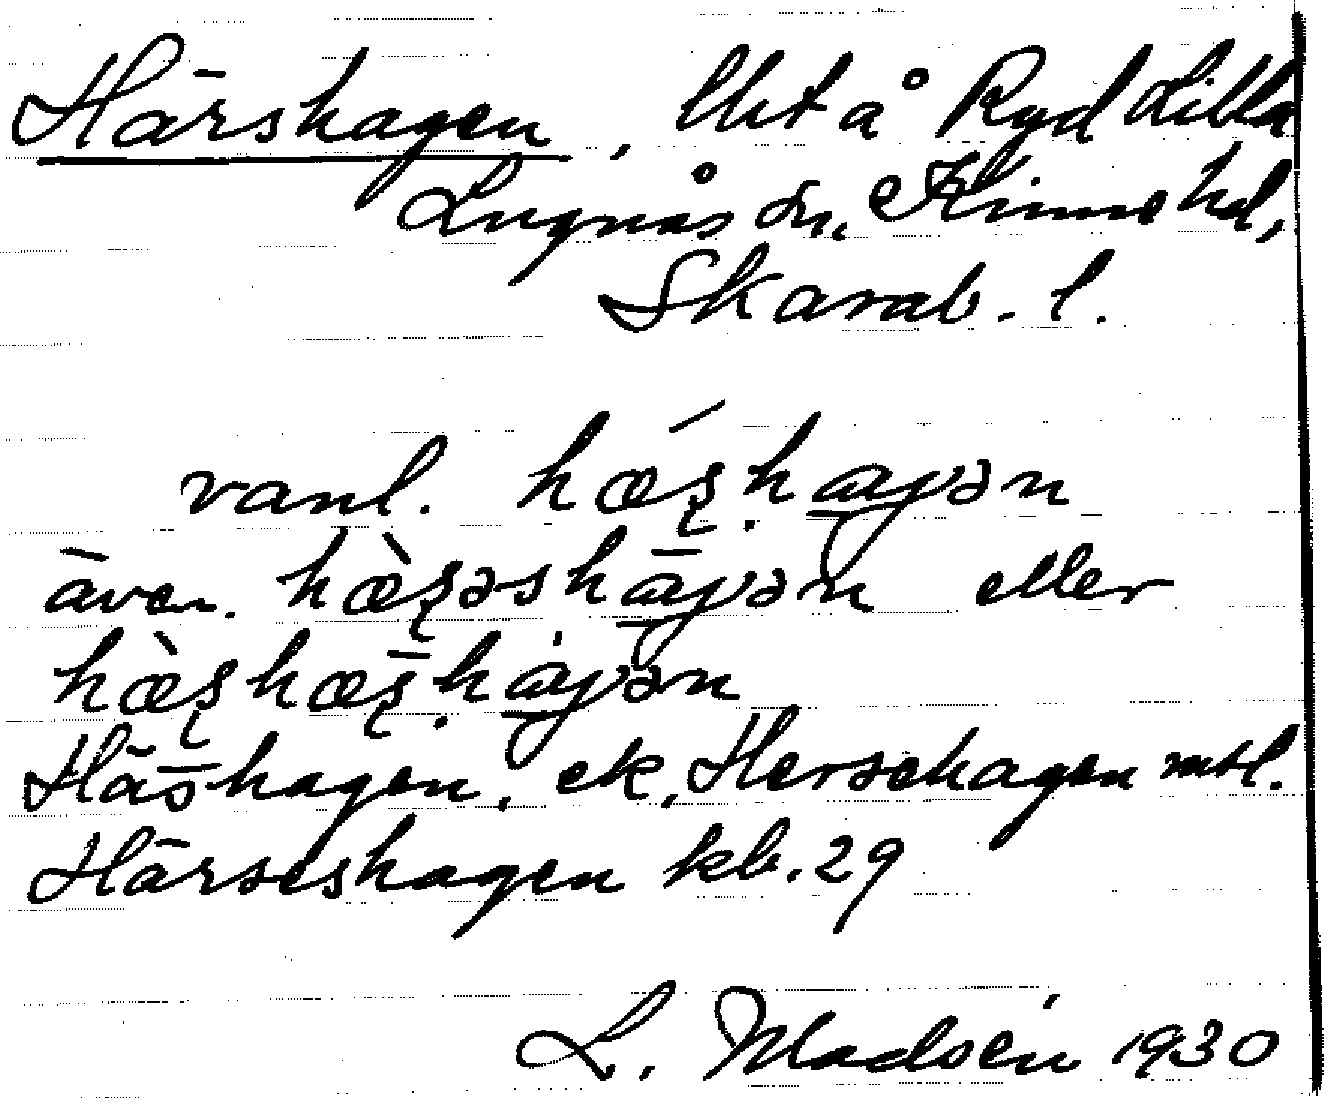 Härshagen, lht å Ryd Lilla
Lugnås sn, Kinne hd,
Skarab. l.
vanl. hæʂ́.haγən
även. hæ̀ʂəshāγən eller
hæ̀ʂhæʂ̄.hàγən
Häshagen, ek, Hersehagen mtl.
Härseshagen kb. 29
L. Madsén 1930